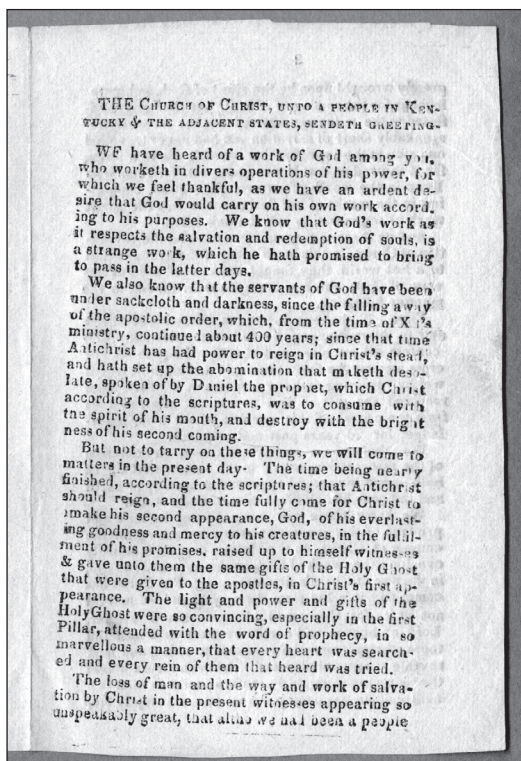 THE CHURCH OF CHRIST, UNTO A PEOPLE IN KEN-
TUCKY & THE ADJACENT STATES, SENDETH GREETING-
WF have heard of a work of God among you,
who worketh in divers operations of his power, for
which we feel thankful, as we have an ardent de-
sire that God would carry on his own work accord.
ing to his purposes. We know that God's work as
it respects the salvation and redemption of souls, is
a strange work, which he hath promised to bring
to pass in the latter days.
We also know that the servants of God have been
under sackcloth and darkness, since the falling away
of the apostolic order, which, from the time of X t's
ministry, continued about 400 years; since that time
Antichrist has had power to reign in Christ's stead,
and hath set up the abomination that maketh deso-
late, spoken of by Daniel the prophet, which Christ
according to the scriptures, was to consume with
the spirit of his mouth, and destroy with the bright
ness of his second coming.
But not to tarry on these things, we will come to
matters in the present day- The time being nearly
finished, according to the scriptures; that Antichrist
should reign, and the time fully come for Christ to
make his second appearance, God, of his everlast-
ing goodness and mercy to his creatures, in the fulfil-
ment of his promises. raised up to himself witnesses
& gave unto them the same gifts of the Holy Ghost
that were given to the apostles, in Christ's first ap-
pearance. The light and power and gifts of the
HolyGhost were so convincing, especially in the first
Pillar, attended with the word of prophecy, in so
marvellous a manner, that every heart was search-
ed and every rein of them that heard was tried.
The loss of man and the way and work of salva-
tion by Christ in the present witnesses appearing so
unspeakably great, that altho we had been a people